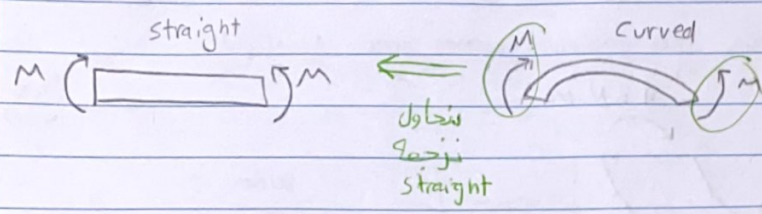 straight
curved
M
M
M
M
نتحاول
نرجعه
straight